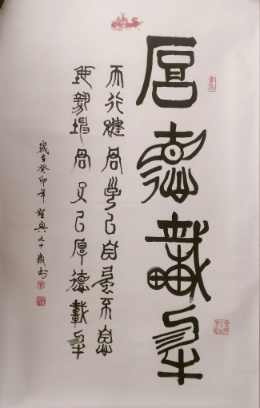 厚德載物
天行健君子以自強不息
地勢坤君子以厚德載物
歲在癸卯年聖典九十歲書